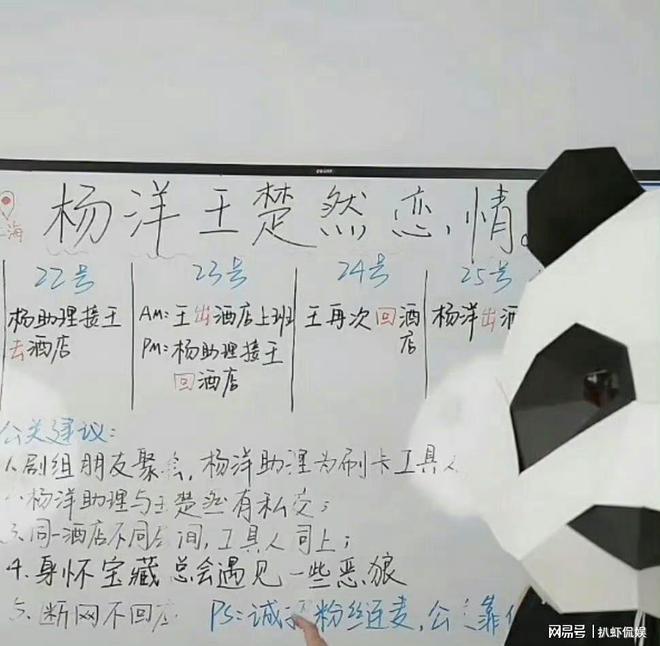 海
杨洋王楚然恋情
22号 23号 24号 25号
杨助理接王
去酒店
AM:王出酒店上班
PM:杨助理接王
回酒店
王再次回酒
店
杨洋出酒
公关建议:
剧组朋友聚会,杨洋助理为刷卡工具人
杨洋助理与王楚然有私交;
同一酒店不同房间,工具人同上;
4.身怀宝藏总会遇见一些恶狼
断网不回应 PS:诚 粉丝连麦,公关靠
网易号 | 扒虾侃娱